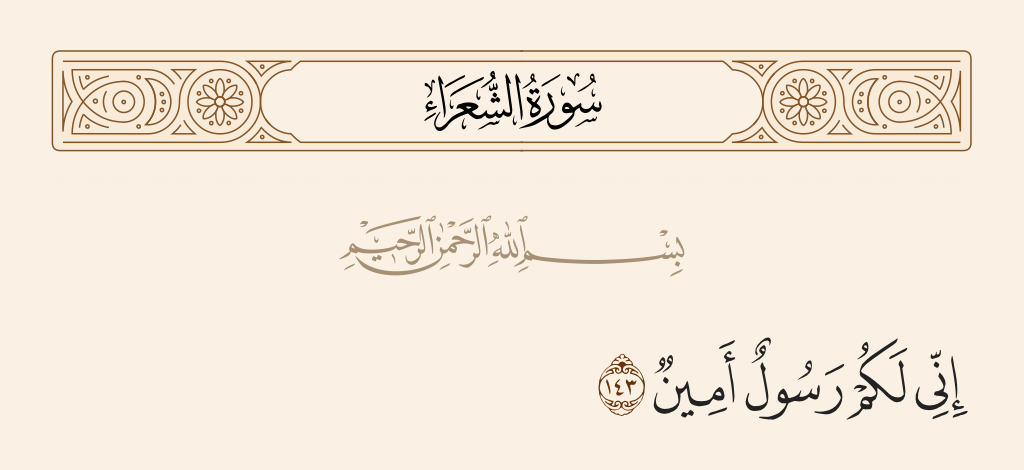 سُورَةُ الشُّعَرَاءِ
بِسْمِ ٱللَّهِ ٱلرَّحْمَٰنِ ٱلرَّحِيمِ
إِنِّى لَكُمْ رَسُولٌ أَمِينٌ ١٤٣